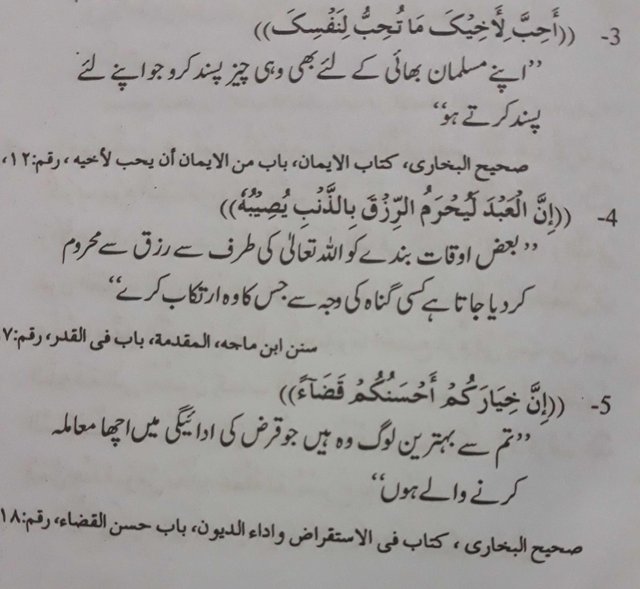 3- ((أَحِبَّ لِأَخِيْكَ مَا تُحِبُّ لِنَفْسِكَ))
’’اپنے مسلمان بھائی کے لئے بھی وہی چیز پسند کرو جو اپنے لئے
پسند کرتے ہو‘‘
صحیح البخاری، کتاب الایمان، باب من الایمان أن یحب لأخیه، رقم:١٢،
4- ((إِنَّ الْعَبْدَ لَيُحْرَمُ الرِّزْقَ بِالذَّنْبِ يُصِيْبُهٗ))
’’بعض اوقات بندے کو اللہ تعالیٰ کی طرف سے رزق سے محروم
کردیا جاتا ہے کسی گناہ کی وجہ سے جس کا وہ ارتکاب کرے‘‘
سنن ابن ماجه، المقدمة، باب فی القدر، رقم:٧
5- ((إِنَّ خِيَارَكُمْ أَحْسَنُكُمْ قَضَآءً))
’’تم سے بہترین لوگ وہ ہیں جو قرض کی ادائیگی میں اچھا معاملہ
کرنے والے ہوں‘‘
صحیح البخاری، کتاب فی الاستقراض واداء الدیون، باب حسن القضاء، رقم:١٨